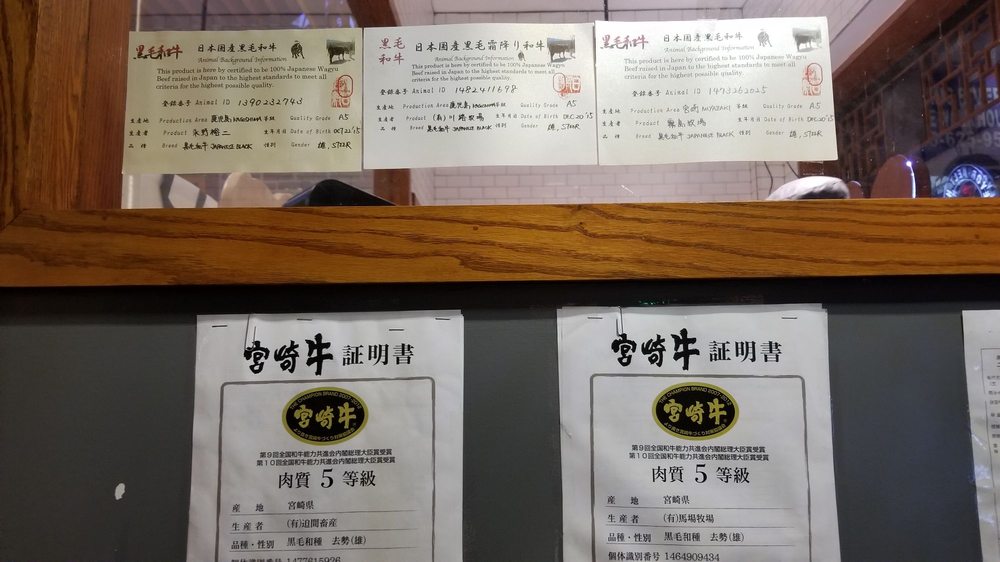 黒毛和牛 日本国産黒毛和牛
Animal Background Information
This product is here by certified to be 100% Japanese Wagyu
Beef raised in Japan to the highest standards to meet all
criteria for the highest possible quality.
登録番号 Animal ID 1390232743
生産地 Production Area 鹿児島 KAGOSHIMA 等級 Quality Grade A5
生産者 Product 生年月日 Date of Birth OCT 22 '15
品種 Breed 黒毛和牛 JAPANESE BLACK 性別 Gender 雄, STEER
黒毛
和牛
日本国産黒毛霜降り和牛
Animal Background Information
This product is here by certified to be 100% Japanese Wagyu
Beef raised in Japan to the highest standards to meet all
criteria for the highest possible quality.
登録番号 Animal ID 1482411698
生産地 Production Area 鹿児島 KAGOSHIMA 等級 Quality Grade A5
生産者 Product 生年月日 Date of Birth DEC.20 '15
品種 Breed 黒毛和牛 JAPANESE BLACK 性別 Gender 雄, STEER
黒毛和牛 日本国産黒毛和牛
Animal Background Information
This product is here by certified to be 100% Japanese Wagyu
Beef raised in Japan to the highest standards to meet all
criteria for the highest possible quality.
登録番号 Animal ID 1473262025
生産地 Production Area 宮崎 MIYAZAKI 等級 Quality Grade A5
生産者 Product 生年月日 Date of Birth DEC.20 '15
品種 Breed 黒毛和牛 JAPANESE BLACK 性別 Gender 雄, STEER
宮崎牛 証明書
THE CHAMPION BRAND 2007-2012
宮崎牛
より良き宮崎牛づくり対策協議会
第9回全国和牛能力共進会内閣総理大臣賞受賞
第10回全国和牛能力共進会内閣総理大臣賞受賞
肉質 5 等級
産地 宮崎県
生産者 (有)迫間畜産
品種・性別 黒毛和種 去勢(雄)
個体識別番号 1477615926
宮崎牛 証明書
THE CHAMPION BRAND 2007-2012
宮崎牛
より良き宮崎牛づくり対策協議会
第9回全国和牛能力共進会内閣総理大臣賞受賞
第10回全国和牛能力共進会内閣総理大臣賞受賞
肉質 5 等級
産地 宮崎県
生産者 (有)馬場牧場
品種・性別 黒毛和種 去勢(雄)
個体識別番号 1464909434